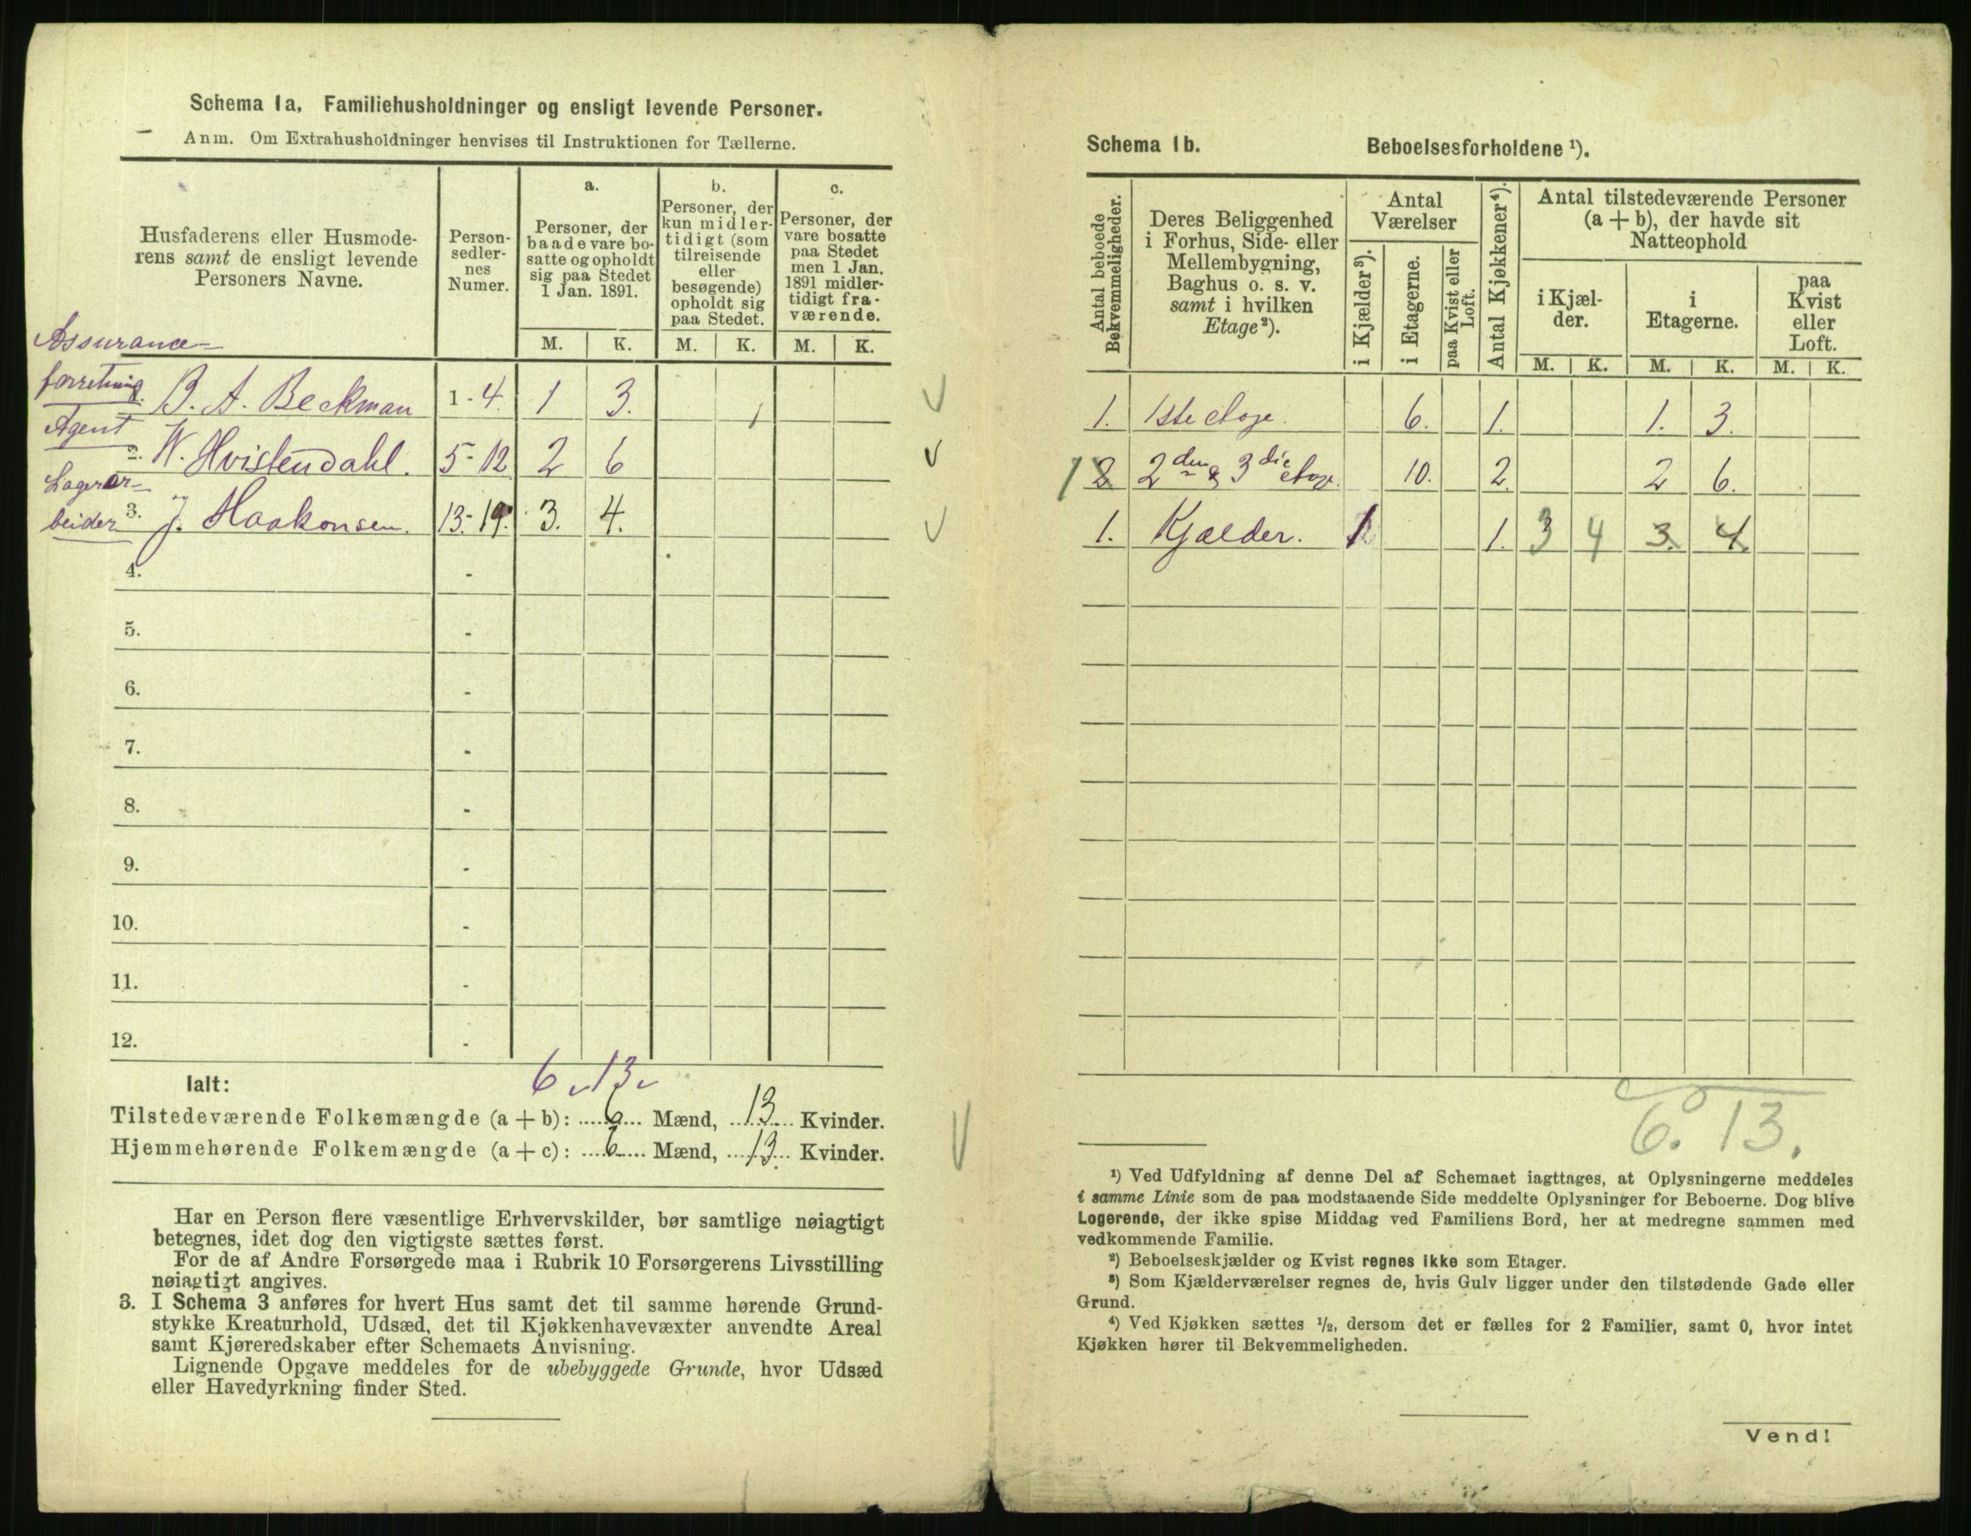 Schema 1a. Familiehusholdninger og ensligt levende Personer.
Anm. Om Extrahusholdninger henvises til Instruktionen for Tællerne.
Husfaderens eller Husmode-
rens samt de ensligt levende
Personers Navne.
Person-
sedler-
nes
Numer.
a.
Personer, der
baade vare bo-
satte og opholdt
sig paa Stedet
1 Jan. 1891.
b.
Personer, der
kun midler-
tidigt (som
tilreisende
eller
besøgende)
opholdt sig
paa Stedet.
c.
Personer, der
vare bosatte
paa Stedet
men 1 Jan.
1891 midler-
tidigt fra-
værende.
M. K. M. K. M. K.
Assurance-
forretning B. A. Beckman 1-4. 1 3.
Agent
2. W. Hvistendahl. 5-12 2 6
Lagerar-
beider 3. J. Haakonsen. 13-19. 3. 4.
4. -
5. -
6. -
7. -
8. -
9. -
10. -
11. -
12. -
6 13
Ialt:
Tilstedeværende Folkemængde (a + b): 6 Mænd, 13 Kvinder.
Hjemmehørende Folkemængde (a + c): 6 Mænd, 13 Kvinder.
Har en Person flere væsentlige Erhvervskilder, bør samtlige nøiagtigt
betegnes, idet dog den vigtigste sættes først.
For de af Andre Forsørgede maa i Rubrik 10 Forsørgerens Livsstilling
nøiagtigt angives.
3. I Schema 3 anføres for hvert Hus samt det til samme hørende Grund-
stykke Kreaturhold, Udsæd, det til Kjøkkenhavevæxter anvendte Areal
samt Kjøreredskaber efter Schemaets Anvisning.
Lignende Opgave meddeles for de ubebyggede Grunde, hvor Udsæd
eller Havedyrkning finder Sted.
Schema 1b. Beboelsesforholdene ¹).
Antal beboede
Bekvemmeligheder.
Deres Beliggenhed
i Forhus, Side- eller
Mellembygning,
Baghus o. s. v.
samt i hvilken
Etage²).
Antal
Værelser
i Kjælder³).
i Etagerne.
paa Kvist eller
Loft.
Antal Kjøkkener⁴).
Antal tilstedeværende Personer
(a + b), der havde sit
Natteophold
i Kjæl-
der.
i
Etagerne.
paa
Kvist
eller
Loft.
M. K. M. K. M. K.
1. 1ste etage. 6. 1. 1. 3.
1 2 2den & 3die etage. 10. 2. 2 6.
1. Kjælder. 1 1. 3 4 3. 4.
6. 13.
¹) Ved Udfyldning af denne Del af Schemaet iagttages, at Oplysningerne meddeles
i samme Linie som de paa modstaaende Side meddelte Oplysninger for Beboerne. Dog blive
Logerende, der ikke spise Middag ved Familiens Bord, her at medregne sammen med
vedkommende Familie.
²) Beboelseskjælder og Kvist regnes ikke som Etager.
³) Som Kjælderværelser regnes de, hvis Gulv ligger under den tilstødende Gade eller
Grund.
⁴) Ved Kjøkken sættes ½, dersom det er fælles for 2 Familier, samt 0, hvor intet
Kjøkken hører til Bekvemmeligheden.
Vend!